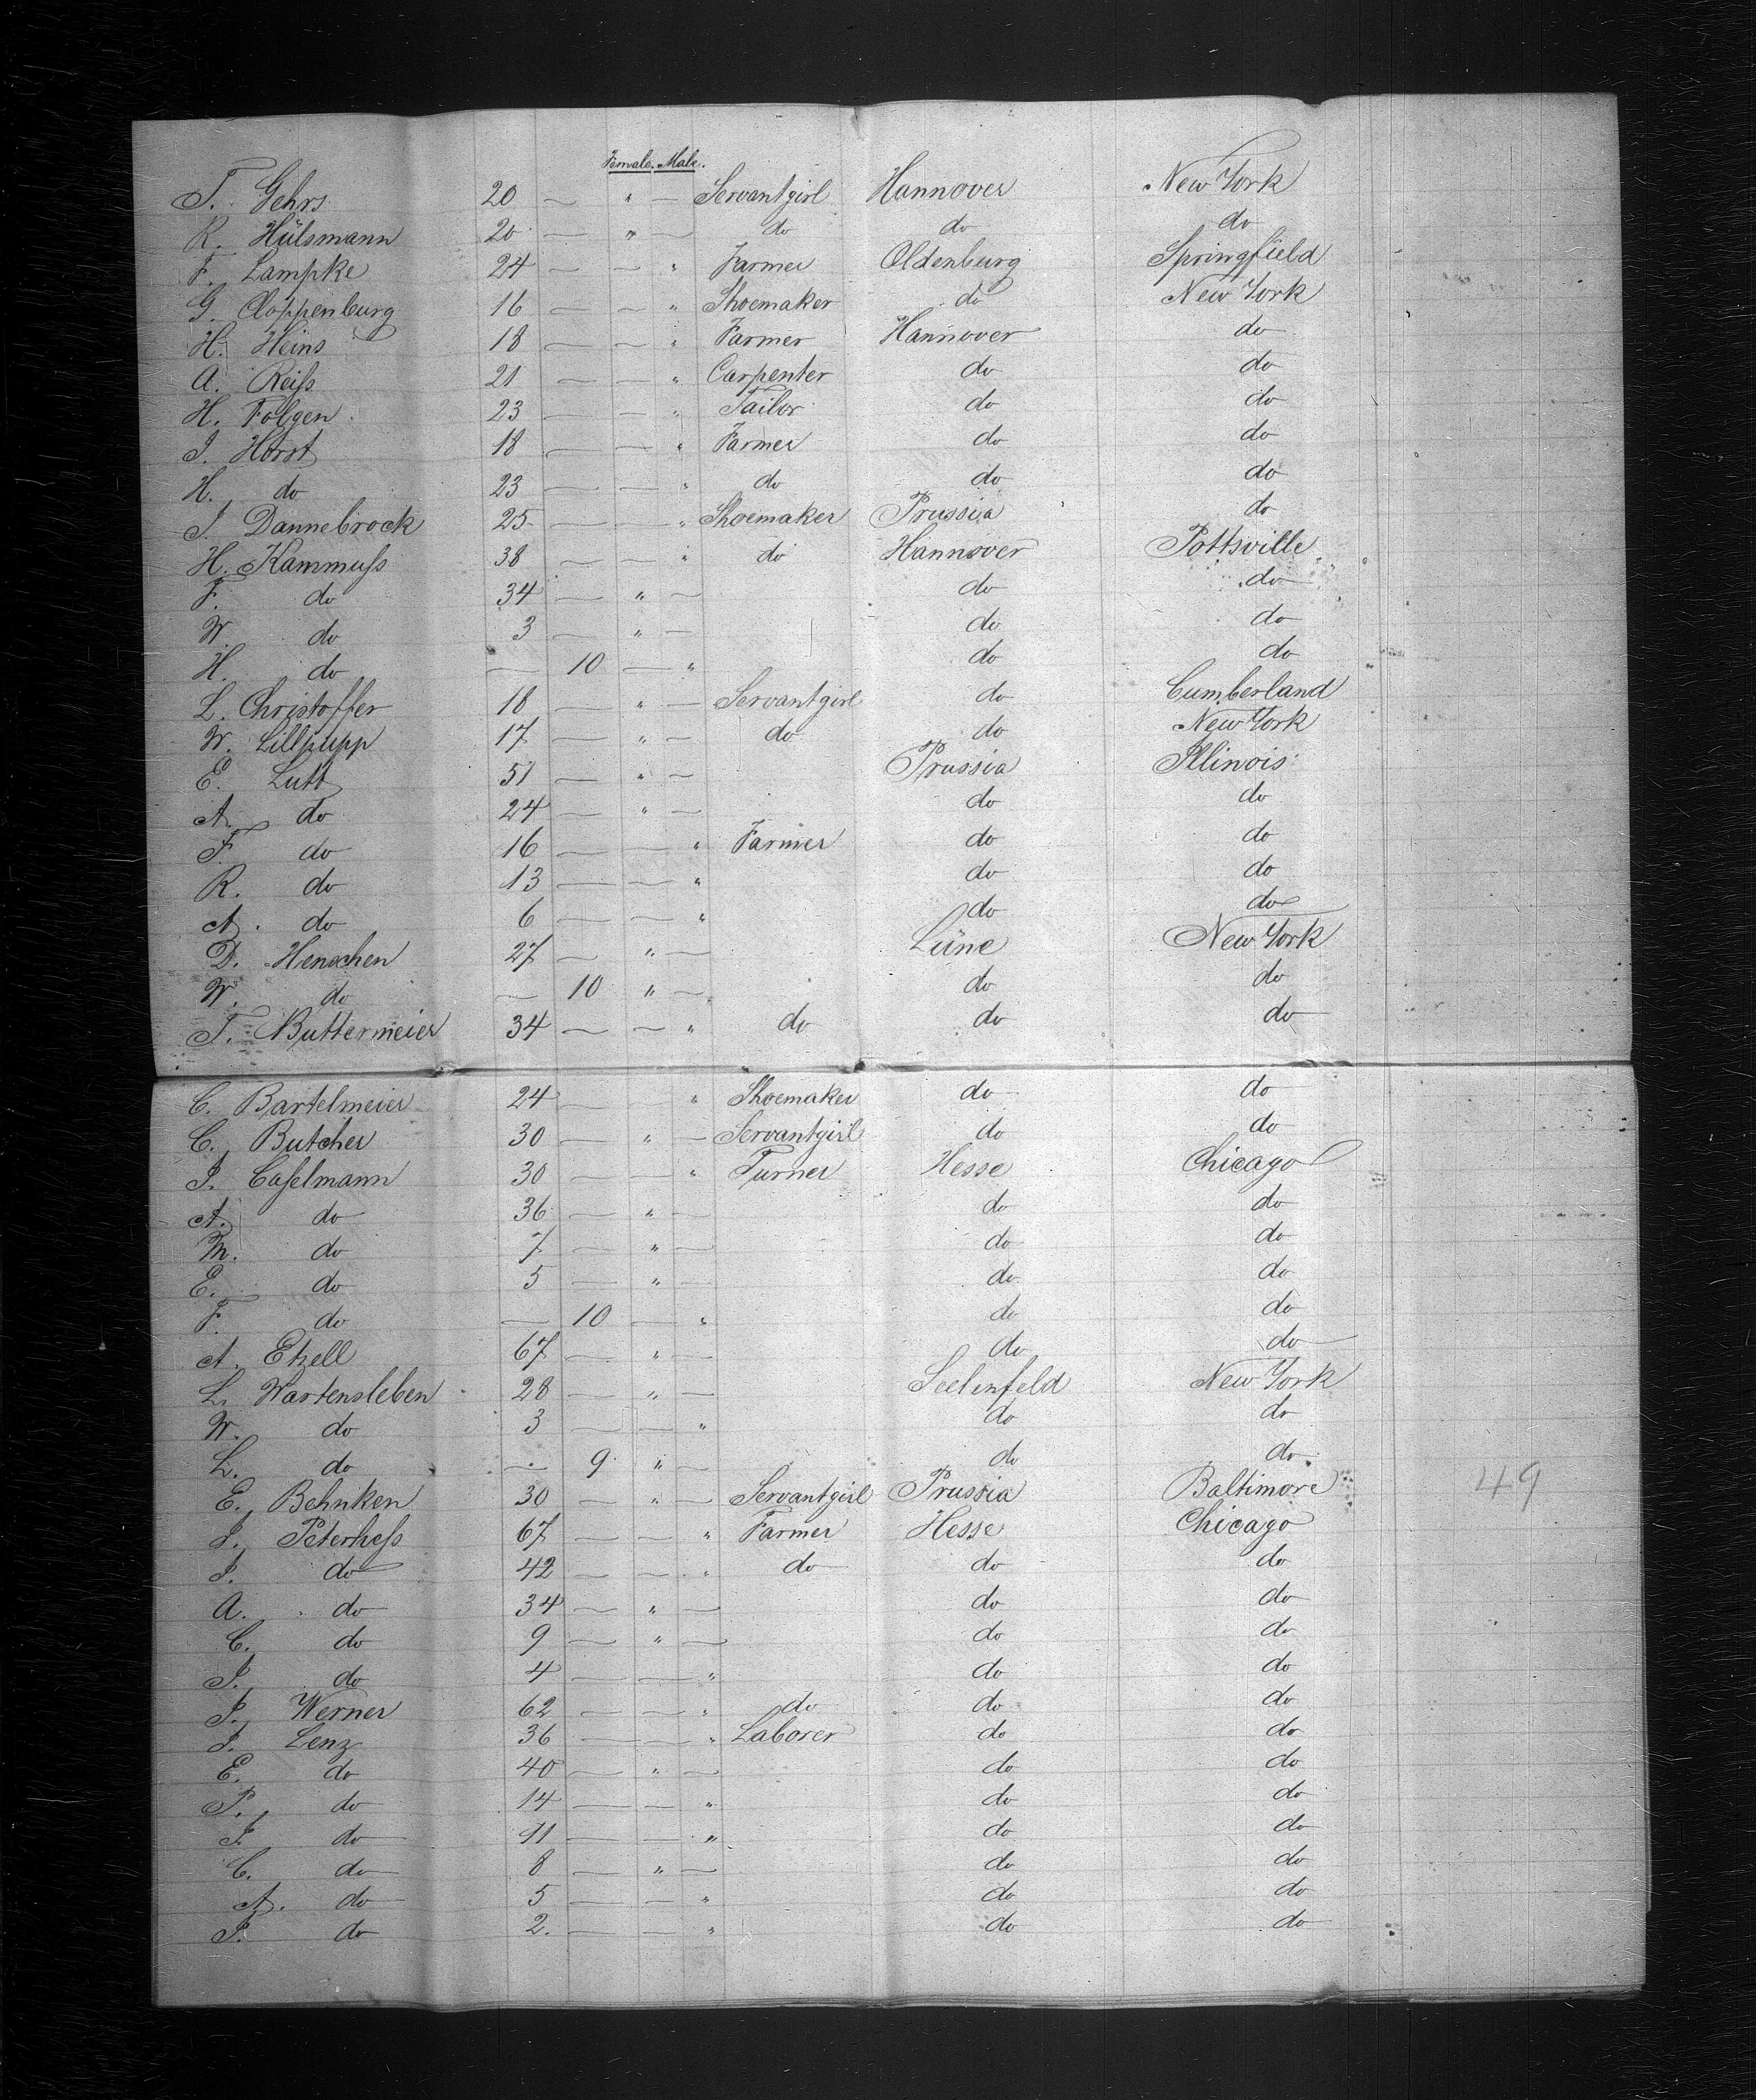 Female. Male.
T. Gehrs 20 — " — Servantgirl Hannover New York
R. Hülsmann 20 — " — do do do
F. Lampke 24 — — " Farmer Oldenburg Springfield
G. Cloppenburg 16 — — " Shoemaker do New York
H. Heins 18 — — " Farmer Hannover do
A. Reiſs 21 — — " Carpenter do do
H. Folgen 23 — — " Tailor do do
J. Horst 18 — — " Farmer do do
H. do 23 — — " do do do
J. Dannebrock 25 — — " Shoemaker Prussia do
H. Kammuſs 38 — — " do Hannover Pottsville
F. do 34 — " — do do
W. do 3 — " — do do
H. do — 10 — " do do
L. Christoffer 18 — " — Servantgirl do Cumberland
W. Lillpupp 17 — " — do do New York
E. Lutt 51 — " — Prussia Illinois
A. do 24 — " — do do
F. do 16 — — " Farmer do do
R. do 13 — — " do do
A. do 6 — — " do do
D. Henschen 27 — " — Lüne New York
W. do — 10 " — do do
T. Buttermeier 34 — — " do do do
C. Bartelmeier 24 — — " Shoemaker do do
C. Butcher 30 — " — Servantgirl do do
J. Caſelmann 30 — — " Turner Hesse Chicago
A. do 36 — " — do do
M. do 7 — " — do do
E. do 5 — " — do do
F. do — 10 — " do do
A. Etzell 67 — " — do do
L. Wartensleben 28 — " — Seelenfeld New York
W. do 3 — — " do do
L. do — 9 " — do do
E. Behnken 30 — " — Servantgirl Prussia Baltimore
J. Peterheſs 67 — — " Farmer Hesse Chicago
J. do 42 — — " do do do
A. do 34 — " — do do
C. do 9 — " — do do
J. do 4 — — " do do
J. Werner 62 — — " do do do
J. Lenz 36 — — " Laborer do do
E. do 40 — " — do do
P. do 14 — — " do do
J. do 11 — — " do do
C. do 8 — " — do do
A. do 5 — — " do do
J. do 2. — — " do do
49